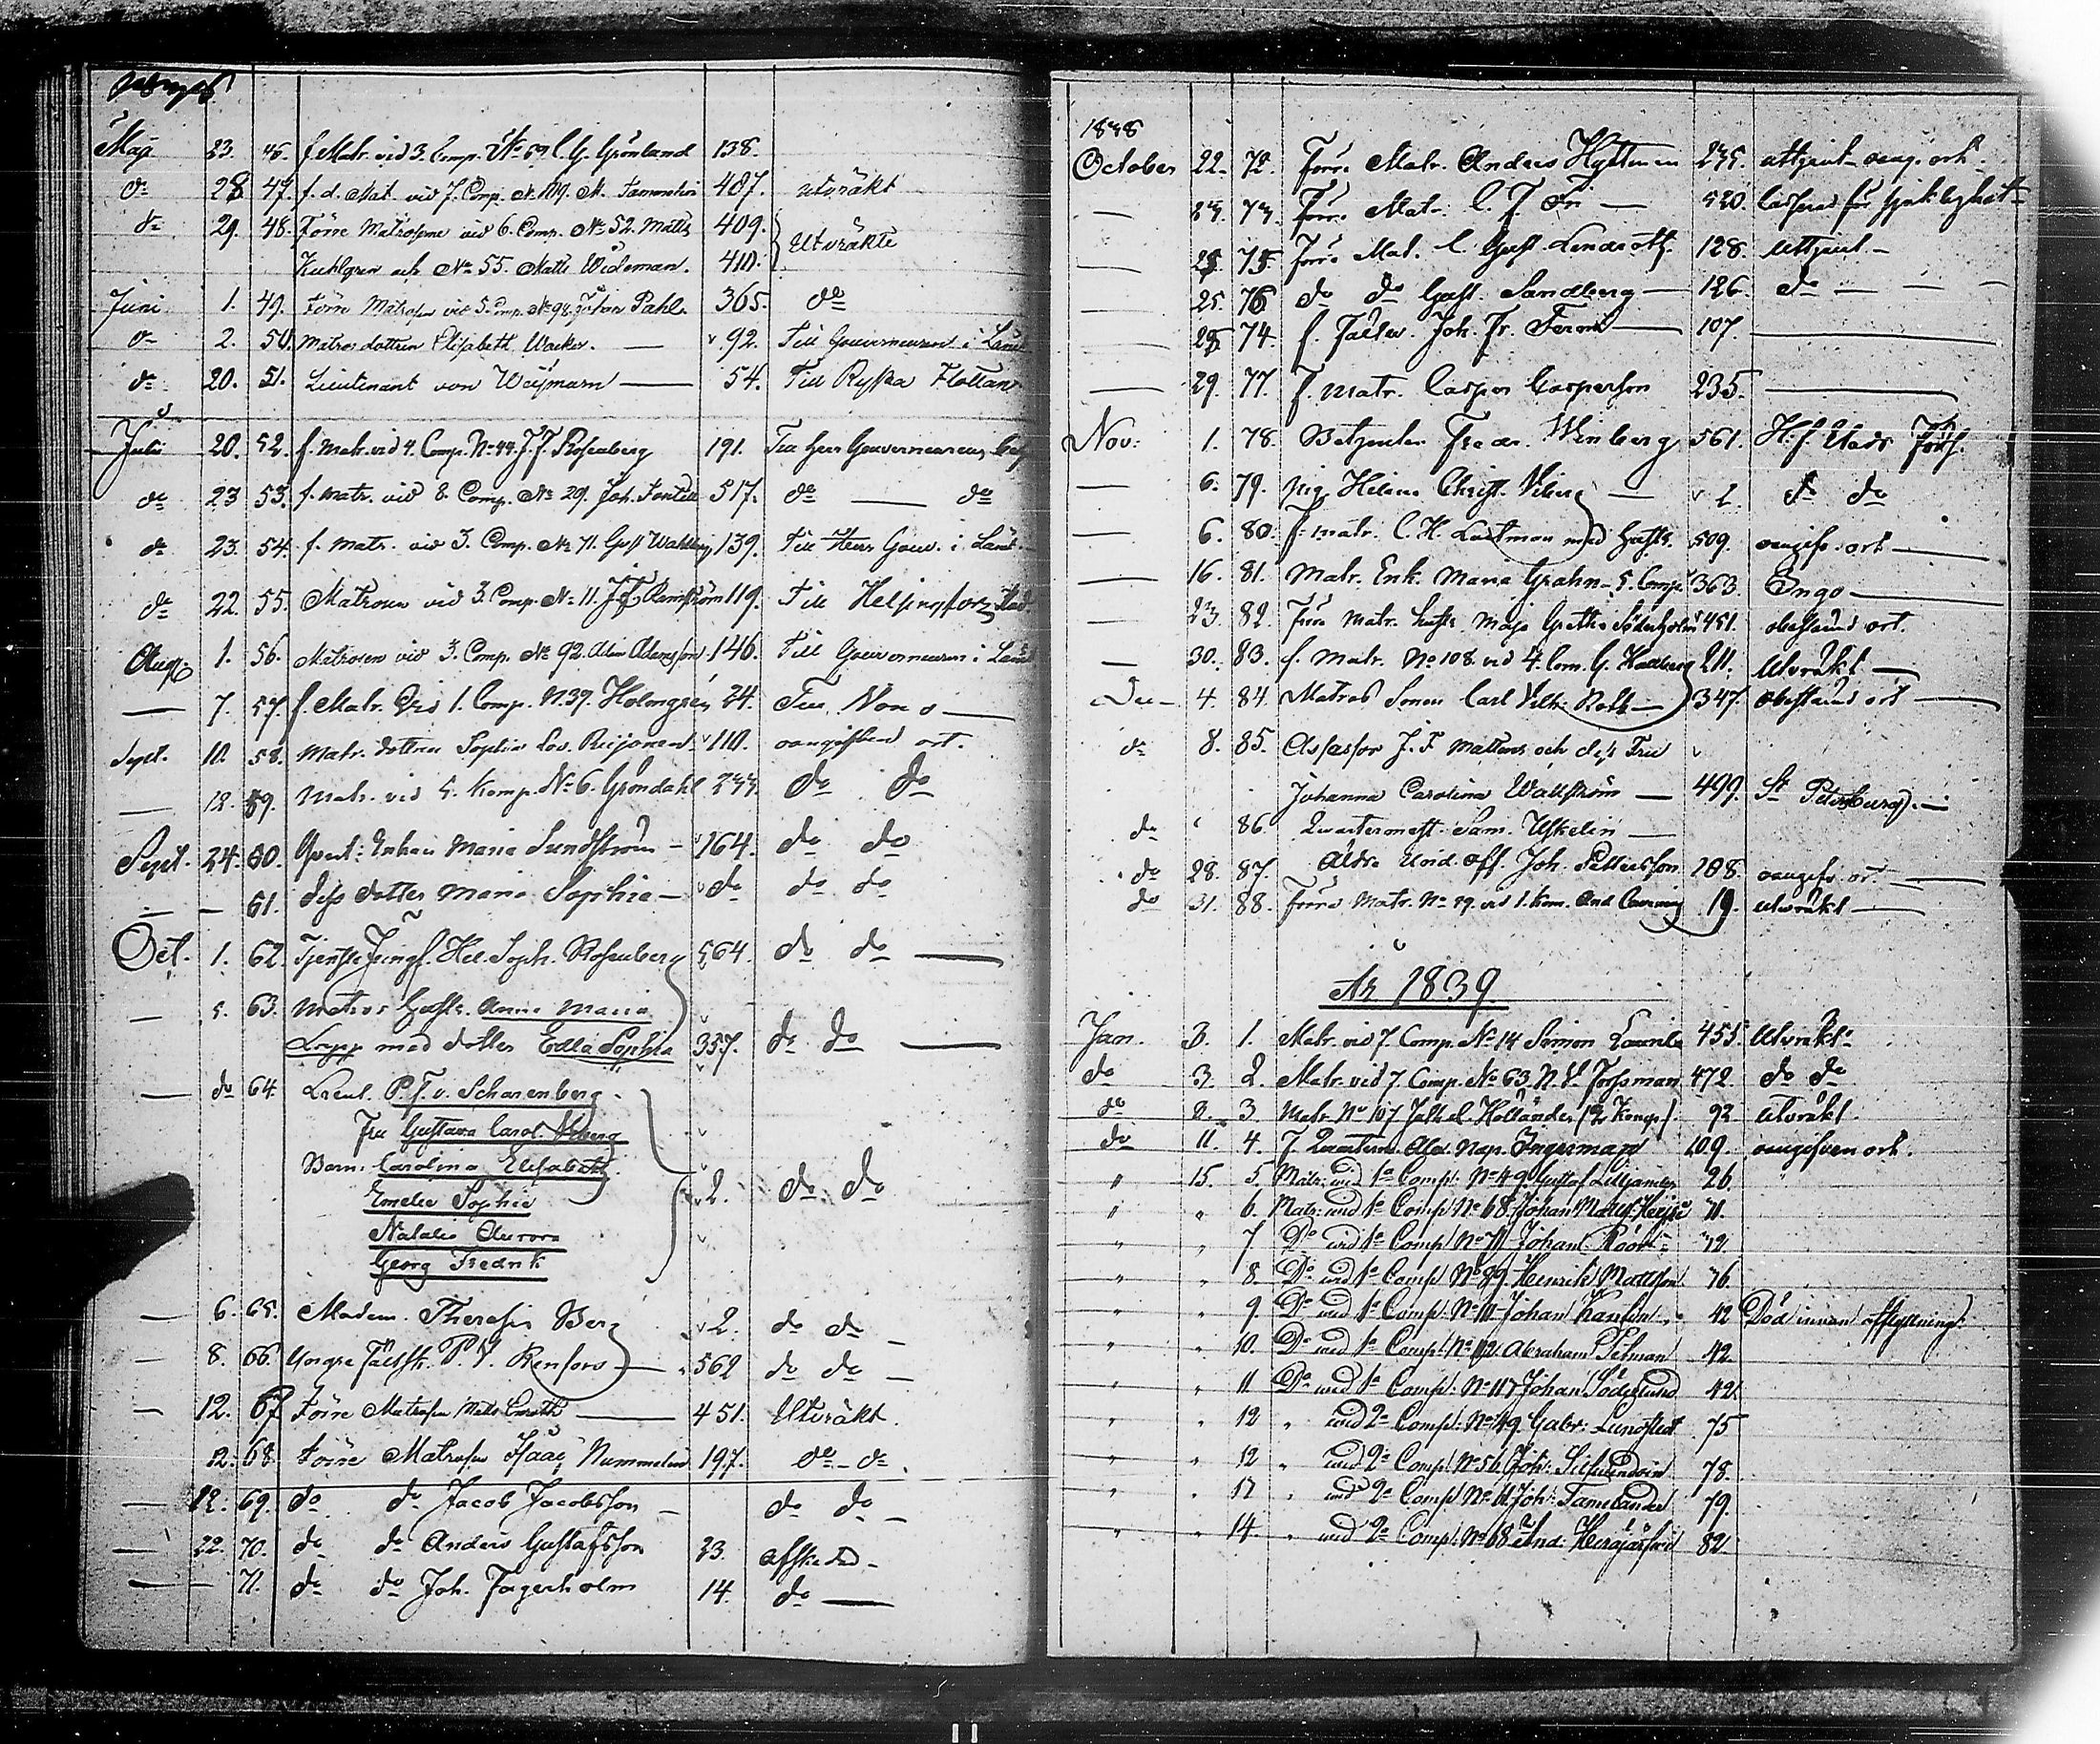 Maji 23. 46. f. Matr. vid 3. Comp. No 69 C. G. Grönland 138.
do 28 47. f. d. Mat. vid 7. Comp. N. 119. M. 407. utvräkt
do 29. 48. Förre Matroserne vid 6. Comp. No 52. Matts 409.
Kuhlgren och No 55. Matts Wideman. 410. Utvräkte
Juni 1. 49. Förre Matrosen vid 5. Comp. No 98. Johan Pahl. 365. do
do 2. 50. Matros dottren Elisabeth Wacker. 92. Till Gouverneuren i Länet
do 20. 51. Lieutenant von Weijmarn 54. Till Ryska Flottan
Juli 20. 52. f. Matr. vid 4. Comp. No 44. J. J. Rosenberg 191. Till Herr Gouverneuren
do 23 53. f. matr. vid 8. Comp. No 29. Joh. 517. do do
do 23. 54. f. Matr. vid 3. Comp. No 71. Gust Wahlberg 139. Till Herr Gouv. i Länet
do 22. 55. Matrosen vid 3. Comp. No 11. J. F. Ramström 119. Till Helsingfors Stad
Aug. 1. 56. Matrosen vid 3. Comp. No 92. Adam Adamsson 146. Till Gouverneuren i Länet
7. 57. f. Matr. vid 1. Comp. N. 39. Holmgren 24. Till
Sept. 10. 58. Matr. dottren Sophia Lov. 110. oangifven ort.
12. 59. Matr. vid 5. Komp. No 6. Gröndahl 233. do do
Sept. 24. 60. Qvart: Enkan Maria Sundström 164. do do
61. dess dotter Maria Sophia do do do
Oct. 1. 62. Tjenste Jungf. Hel. Soph. Rosenberg 564. do do
5. 63. Matros Hustr. Anna Maria
Lopp med dotter Edla Sophia 357. do do
do 64. Lieut. P. F. v. Scharenberg.
Fru Gustava Carol. Viberg
Barn: Carolina Elisabeth.
Emelie Sophie 2. do do
Natalia Aurora
Georg Fredrik
6. 65. Madem. Theresia Berg 2. do do
8. 66. Yngre Fältsk. P. V. Renfors 562 do do
12. 67 Förre Matrosen Matts 451. Utvräkt.
12. 68 Förre Matrosen Isaac Nummelin 197. do do
12. 69. do do Jacob Jacobsson do do
22. 70. do do Anders Gustafsson 23. afsked
71. do do Joh. Fagerholm 14. do
1838
October 22. 72. Förre Matr. Anders Hyttinen 235. uttjent oang. ort
23. 73. Förre Matr. C. J. Fri 520. casserad för sjuklighet
25. 75. Förre Mat. C Gust Lindroth. 128. uttjent
25. 76 do do Gust. Sandberg 126. do
25 74 f. Joh. Fr. 107
29. 77. f. Matr. Casper Casperson 235.
Nov: 1. 78. Betjenten Fredr. Winberg 561. H:f. Stads förs.
6. 79. Pig. Helena Christ. Viberg 2 do do
6. 80. f. matr. C. H. Lastman med hustr. 509. oangifv. ort
16. 81. Matr. Enk. Maria Grahn 5. Comp. 363. Ingo
23. 82. Förre Matr. hustr. Maja Gretha Söderholm 451. obestämd ort.
30. 83. f. Matr. No 108 vid 4. Com. G. 211. Utvräkt
Dec. 4. 84. Matros Sonen Carl Vilh: Roth 347. obestämd ort
do 8. 85. Assessor J. F. Mattens och dess Fru
Johanna Carolina Wallström 499. St Petersburg.
do 86. Quartermest. Sam. Uskelin
do 28. 87. Äldre Und. off. Joh. Pettersson 208. oangifv. ort
do 31. 88. Förre Matr. No 29. vid 1. Kom. And 19. utvräkt
År 1839
Jan. 3. 1. Matr. vid 7. Comp. No 14 Simon Launila 455. Utvräkt
do 3. 2. Matr. vid 7. Comp. No 63. N. V. Forssman 472 do do
do 8. 3. Matr. No 107 Holländer (2 Komp) 92 utvräkt.
do 11. 4. f. Quarterm. Alex. Nap. Ingerman 109. oangifven ort.
" 15. 5. Matr. wid 1a Comp: No 49 Gustaf Liljander 26.
" " 6. Matr. wid 1a Comp: No 68 Johan 71.
" " 7 Do wid 1a Comp No 71 Johan 72.
" " 8 Do wid 1a Comp No 89 Henrik Mattsson 76
" " 9. Do wid 1a Comp: No 111 Johan Karlson 42 Död innan afflyttning.
" " 10. Do wid 1a Comp: No 112 Abraham Selman 42.
" " 11 Do wid 1a Comp: No 117 Johan Söderlund 42
" " 12 " wid 2a Comp: No 49 Gabr: Lundstedt 75
" " 12 " wid 2a Comp No 56 Joh: 78.
" " 17 " wid 2a Comp No 61 Joh: Tamelander 79.
" " 14 " wid 2a Comp: No 68 And: 82.